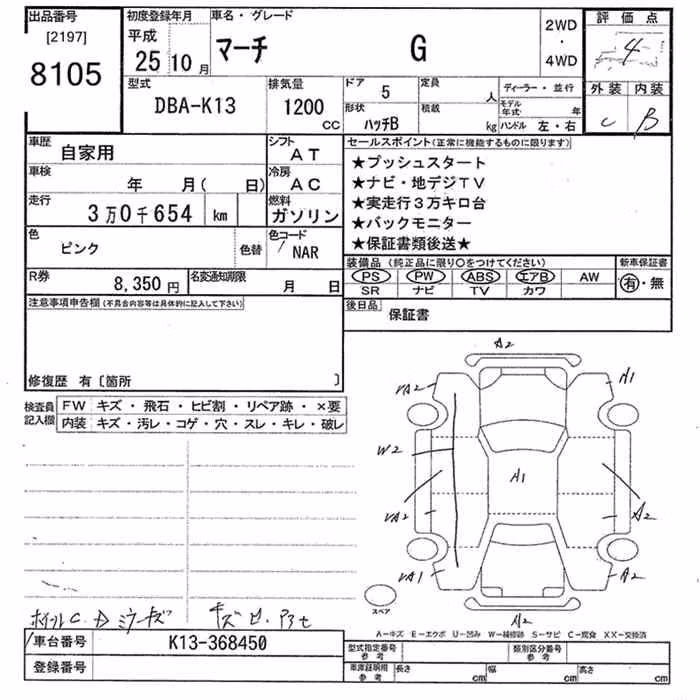 出品番号
[2197]
8105
初度登録年月
平成
25 10月
車名・グレード
マーチ G
2WD
・
4WD
評価点
4
外装 内装
C B
型式
DBA-K13
排気量
1200
CC
ドア
5
定員
人
ディーラー・並行
形状
ハッチB
積載
kg
モデル年式 年
ハンドル 左・右
車歴
自家用
シフト
AT
車検
年 月( 日)
冷房
AC
走行
3万0千654 km
燃料
ガソリン
色
ピンク
色替
色コード
NAR
R券
8,350円
名変通知期限
月 日
セールスポイント(正常に機能するものに限ります)
★プッシュスタート
★ナビ・地デジTV
★実走行3万キロ台
★バックモニター
★保証書類後送★
装備品(純正品に限り○をつけてください)
PS PW ABS エアB AW
SR ナビ TV カワ
新車保証書
有・無
後日品
保証書
注意事項申告欄(不具合内容等は具体的に記入して下さい)
修復歴 有〔箇所 〕
検査員
記入欄
FW キズ・飛石・ヒビ割・リペア跡・×要
内装 キズ・汚レ・コゲ・穴・スレ・キレ・破レ
A2
VA2
A1
W2
A1
VA2
A2
VA1
A2
A2
スペア
ホイルC
ミラーキズ
A-キズ E-エクボ U-凹み W-補修跡 S-サビ C-腐食 XX-交換済
車台番号
K13-368450
登録番号
型式指定番号
参考
類別区分番号
参考
車庫証明用
参考
長さ cm
幅 cm
高さ cm